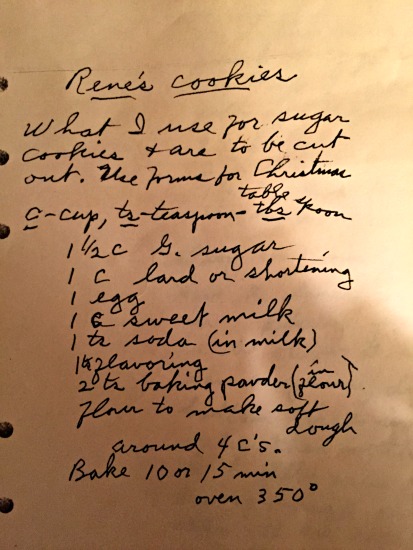 Rene's cookies
What I use for sugar
cookies & are to be cut
out. Use forms for Christmas
c-cup, ts-teaspoon- tbs table spoon
1 1/2 c G. sugar
1 c lard or shortening
1 egg
1 c sweet milk
1 ts soda (in milk)
1 ts flavoring
2 ts baking powder (in flour)
flour to make soft
dough
around 4 c's.
Bake 10 or 15 min
oven 350°